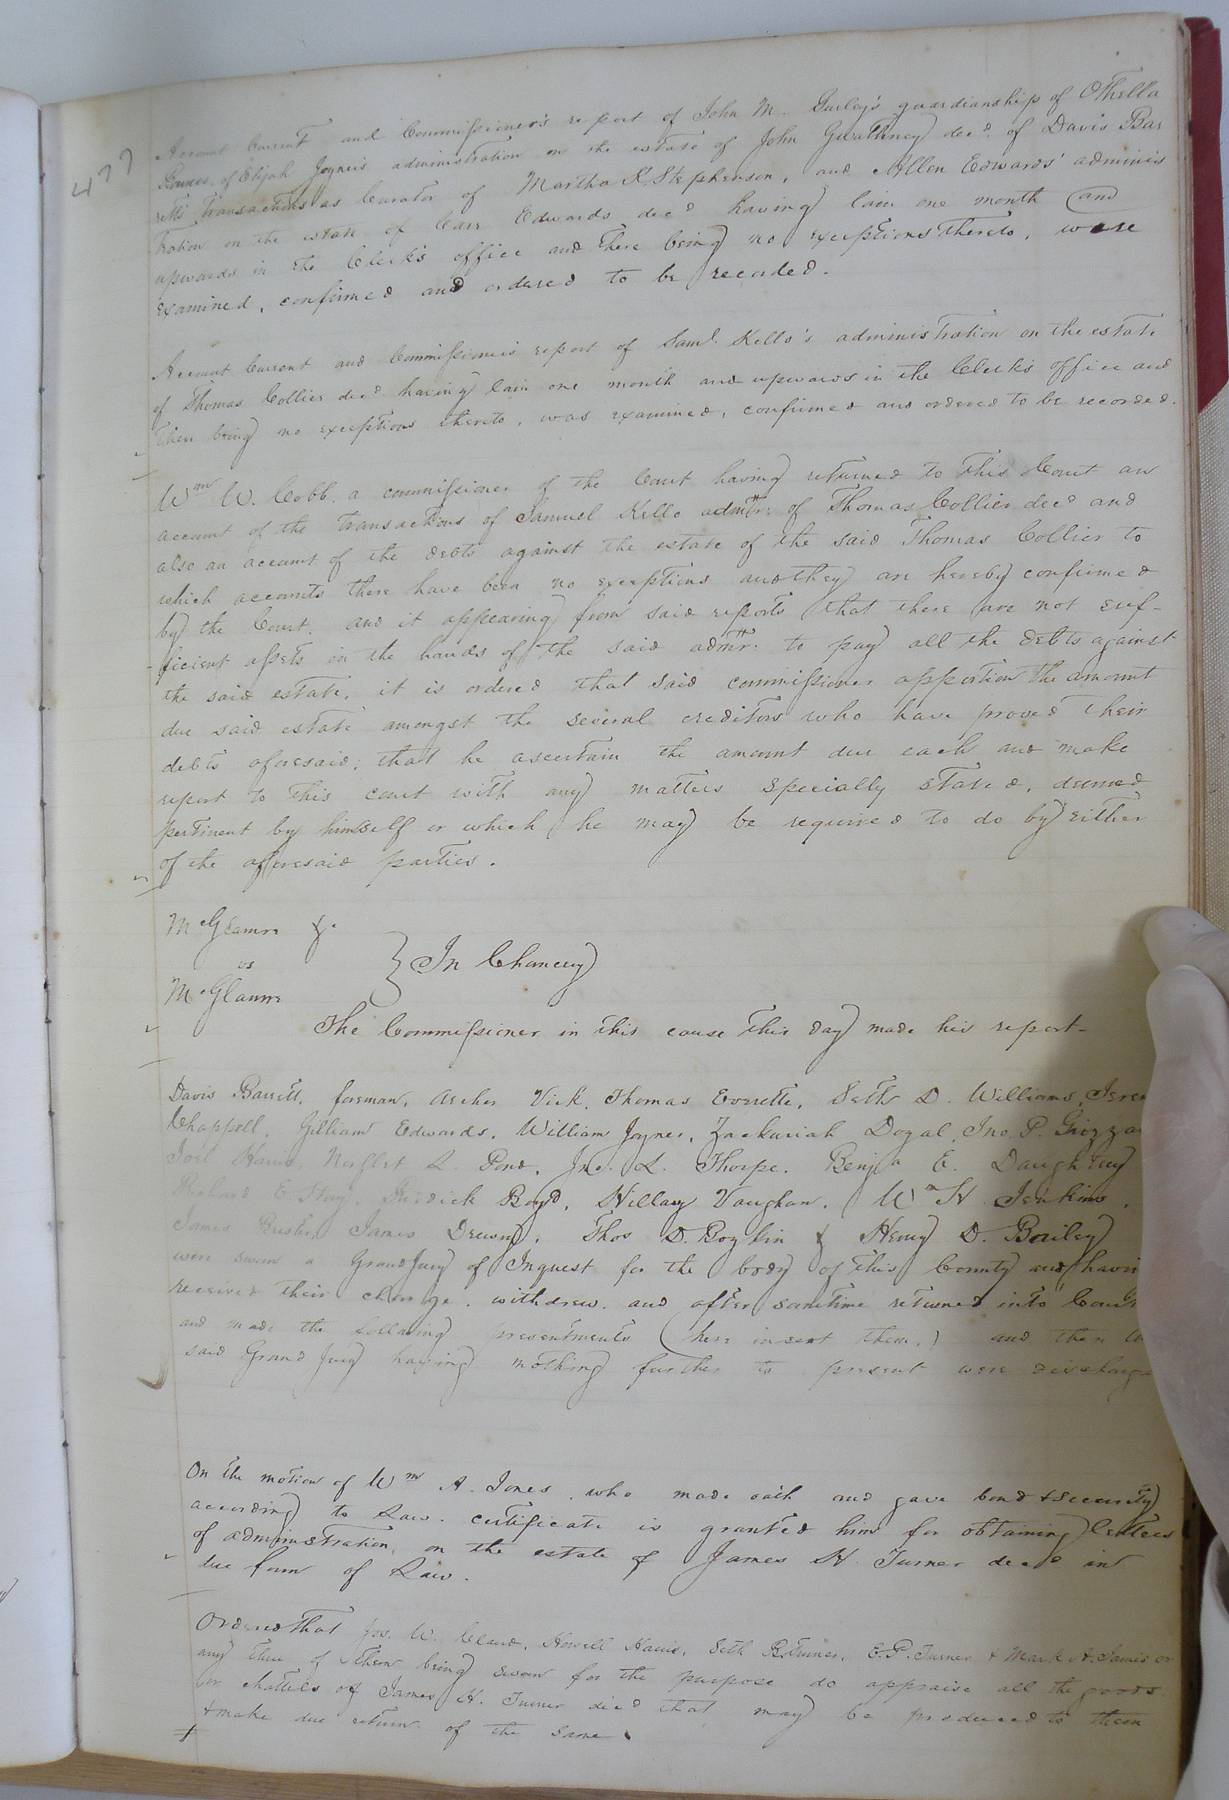 477
Account Current and Commissioner's report of John M. Gurley's guardianship of Othella
Bowers, of Elijah Joyner's administration on the estate of John Gwathney decd. of Davis Bar
retts transactions as Curator of Martha R. Stephenson, and Allen Edwards' adminis
tration on the estate of Carr Edwards decd having lain one month and
upwards in the Clerk's office and there being no exceptions thereto, were
examined, confirmed and ordered to be recorded.
Account Current and Commissioners report of Saml. Kello's administration on the estate
of Thomas Collier decd having lain one month and upwards in the Clerk's office and
there being no exceptions thereto, was examined, confirmed and ordered to be recorded.
Wm W. Cobb, a commissioner of the Court having returned to this Court an
account of the transactions of Samuel Kello admr: of Thomas Collier decd and
also an account of the debts against the estate of the said Thomas Collier to
which accounts there have been no exceptions and they are hereby confirmed
by the Court. and it appearing from said reports that there are not suf-
ficient assets in the hands of the said admr: to pay all the debts against
the said estate, it is ordered that said commissioner apportion the amount
due said estate amongst the several creditors who have proved their
debts aforesaid; that he ascertain the amount due each and make
report to this court with any matters specially stated, deemed
pertinent by himself or which he may be required to do by either
of the aforesaid parties.
McGlamre &c
vs } In Chancery
McGlamre
The Commissioner in this cause this day made his report-
Davis Barrett, foreman, Archer Vick, Thomas Everette, Seth D. Williams,
Chappell, Gilliam Edwards, William Joyner, Zachariah Doyal, Jno. P.
Joel Harris, Norfleet L. Pond, Jno. L. Thorpe, Benja E. Daughtrey
Richard E. Riddick Boyd, Hillary Vaughan, Wm H. Jenkins,
James Busby, James Drewry, Thos D. Boykin & Henry D. Bailey
were sworn a Grand Jury of Inquest for the body of this County and havin
received their charge, withdrew, and after sometime returned into Court
and made the following presentments (here insert them.) and then
said Grand Jury having nothing further to present were discharge
On the motion of Wm A. Jones, who made oath and gave bond & security
according to Law. certificate is granted him for obtaining letters
of administration, on the estate of James H. Turner decd in
due form of Law.
Ordered that Jos. W. Claud, Howell Harris, Seth B. Turner, E. P. Turner & Mark A. James or
any three of them being sworn for the purpose do appraise all the goods
or chattels of James H. Turner decd that may be produced to them
& make due return of the same.